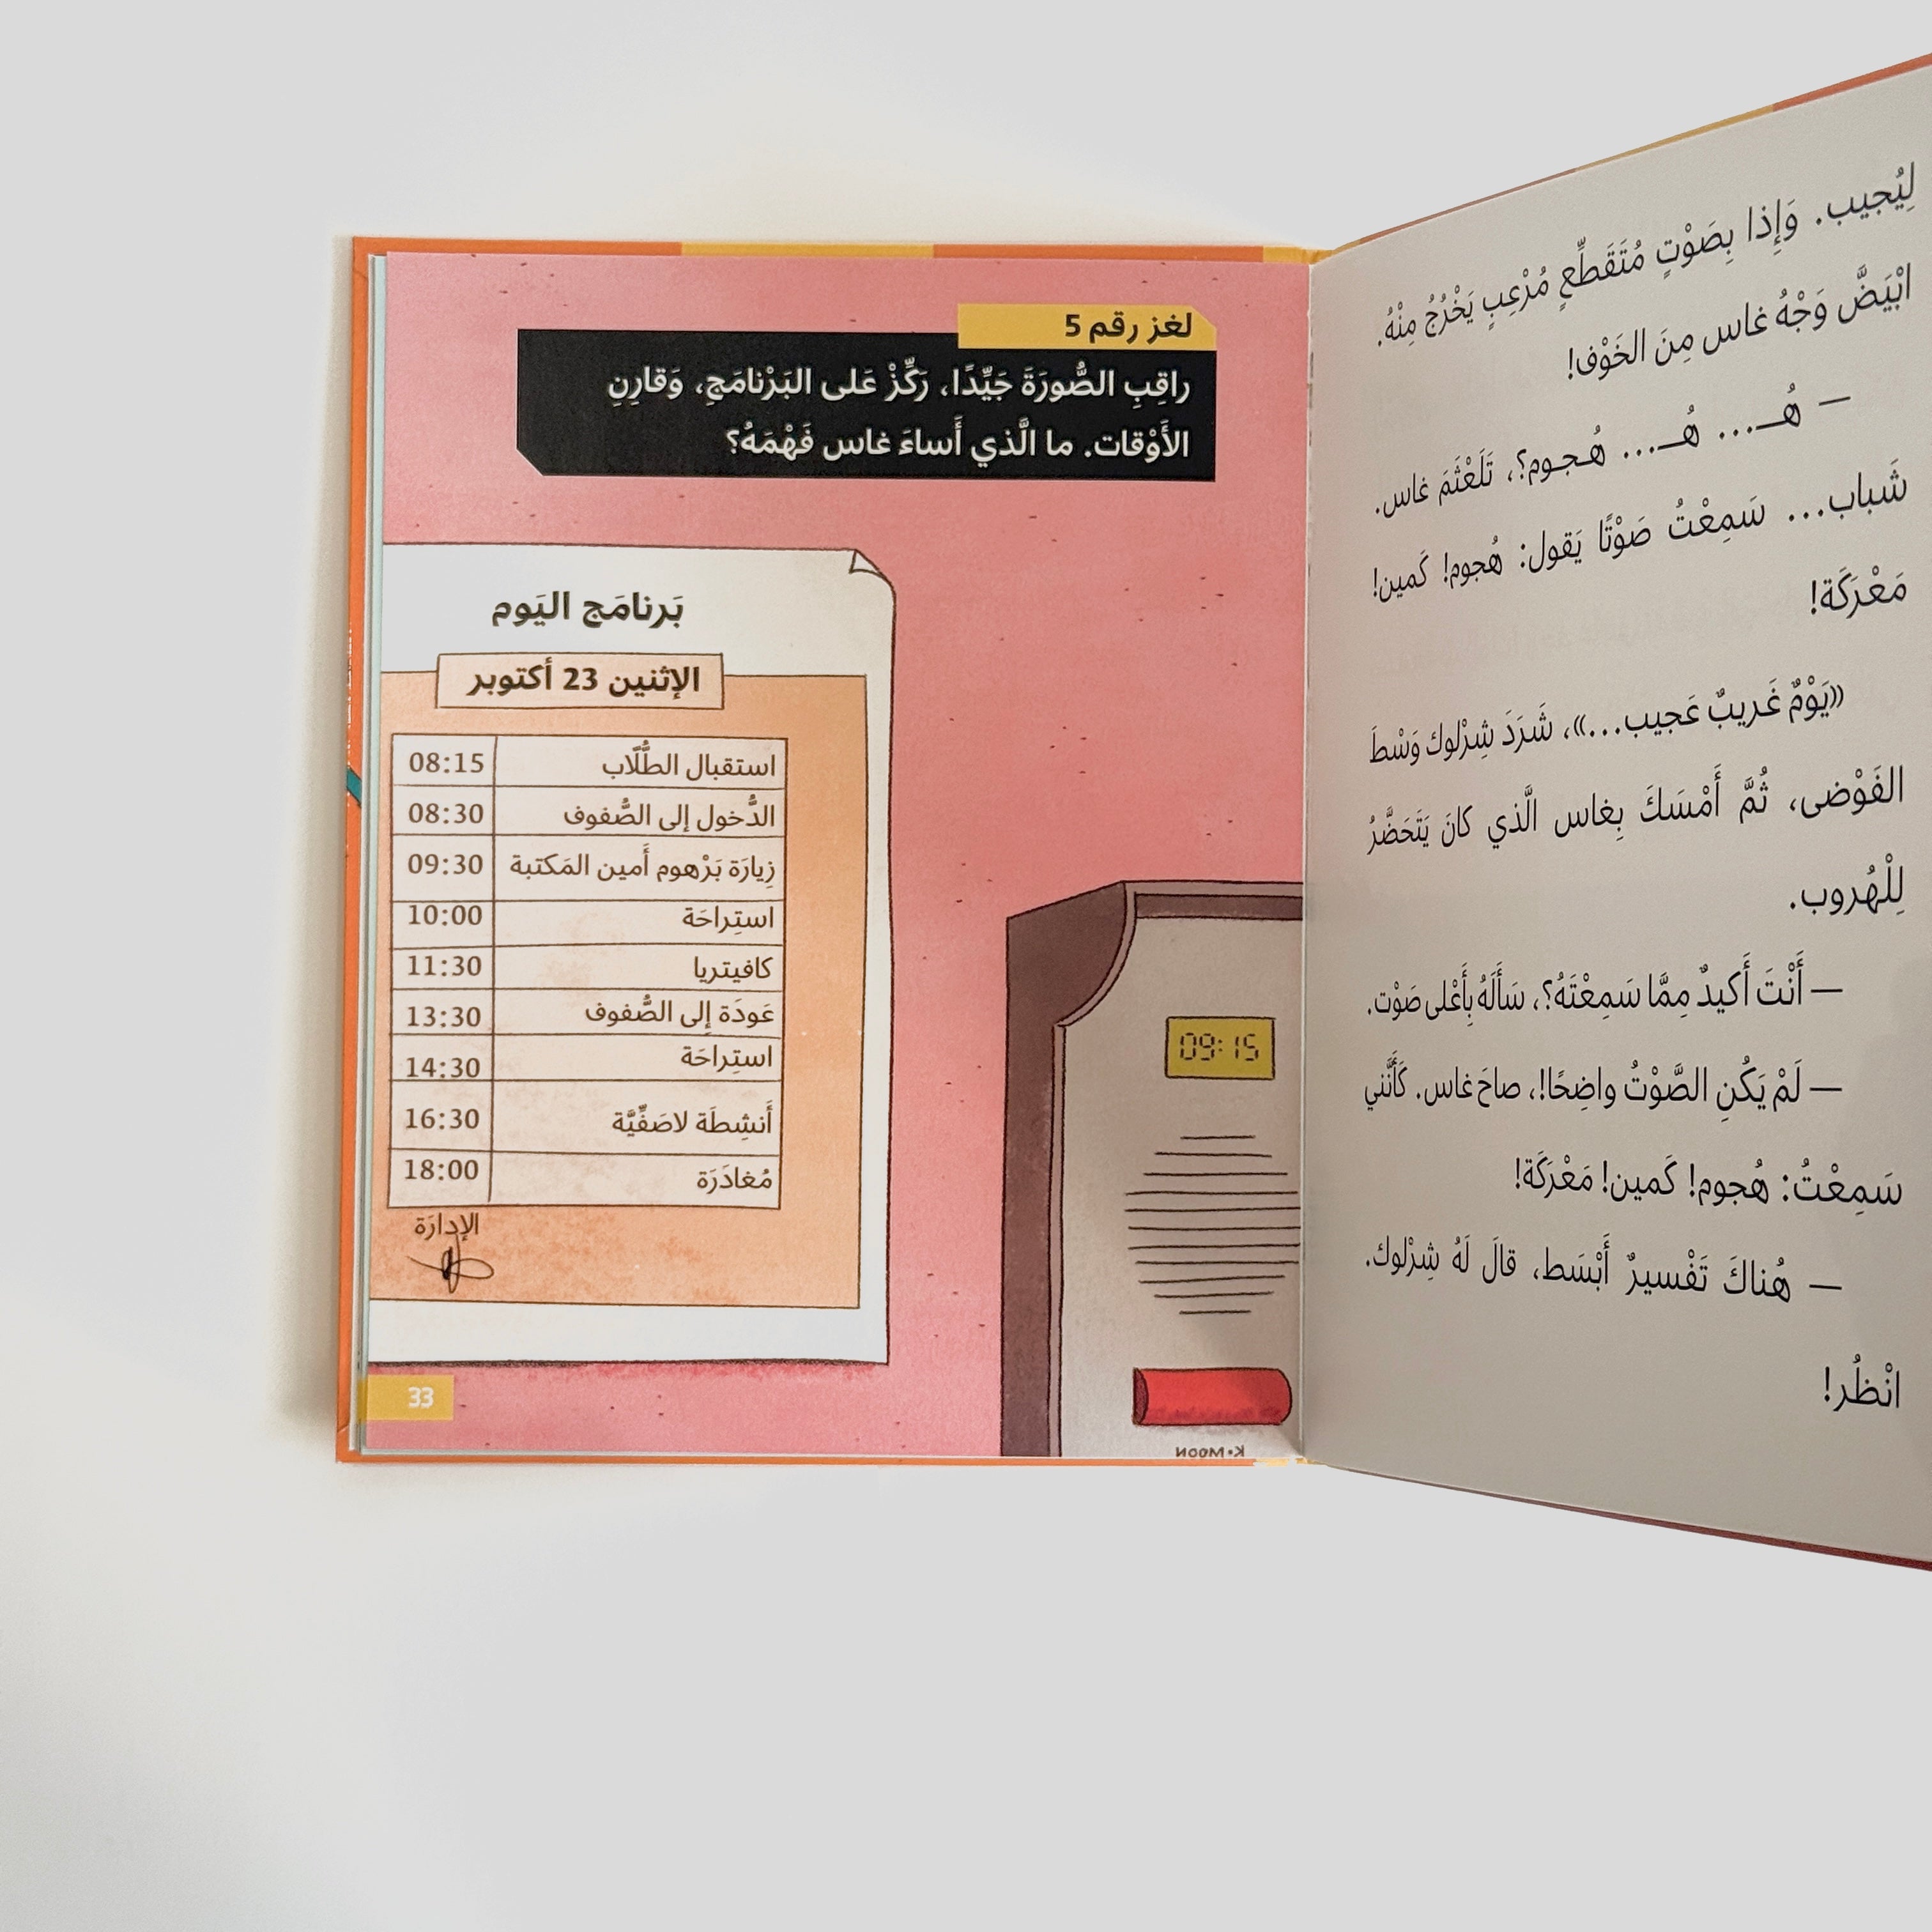 لِيُجيب. وَإِذا بِصَوْتٍ مُتَقَطِّعٍ مُرْعِبٍ يَخْرُجُ مِنْهُ.
ابْيَضَّ وَجْهُ غاس مِنَ الخَوْف!
— هُـ... هُـ... هُجوم؟، تَلَعْثَمَ غاس.
شَباب... سَمِعْتُ صَوْتًا يَقول: هُجوم! كَمين!
مَعْرَكَة!
«يَوْمٌ غَريبٌ عَجيب...»، شَرَدَ شِرْلوك وَسْطَ
الفَوْضى، ثُمَّ أَمْسَكَ بِغاس الَّذي كانَ يَتَحَضَّرُ
لِلْهُروب.
— أَنْتَ أَكيدٌ مِمَّا سَمِعْتَهُ؟، سَأَلَهُ بِأَعْلى صَوْت.
— لَمْ يَكُنِ الصَّوْتُ واضِحًا!، صاحَ غاس. كَأَنَّني
سَمِعْتُ: هُجوم! كَمين! مَعْرَكَة!
— هُناكَ تَفْسيرٌ أَبْسَط، قالَ لَهُ شِرْلوك.
انْظُر!
لغز رقم 5
راقِبِ الصُّورَةَ جَيِّدًا، رَكِّزْ عَلى البَرْنامَجِ، وَقارِنِ
الأَوْقات. ما الَّذي أَساءَ غاس فَهْمَهُ؟
بَرنامَج اليَوم
الإثنين 23 أكتوبر
استقبال الطُّلّاب 08:15
الدُّخول إلى الصُّفوف 08:30
زِيارَة بَرْهوم أَمين المَكتبة 09:30
استِراحَة 10:00
كافيتريا 11:30
عَودَة إِلى الصُّفوف 13:30
استِراحَة 14:30
أَنشِطَة لاصَفِّيَّة 16:30
مُغادَرَة 18:00
الإدارَة
09:15
K•MOON
33